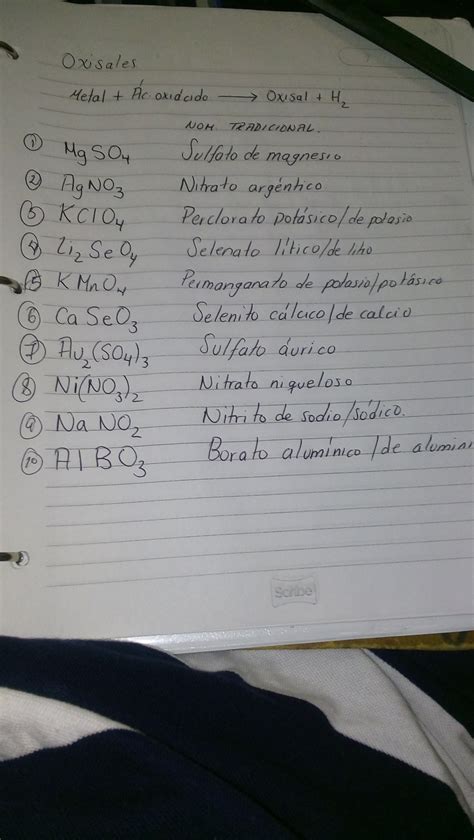 Oxisales
Metal + Ác. oxiácido ⟶ Oxisal + H₂
NOM. TRADICIONAL.
① MgSO₄ Sulfato de magnesio
② AgNO₃ Nitrato argéntico
③ KClO₄ Perclorato potásico/de potasio
④ Li₂SeO₄ Selenato lítico/de litio
⑤ KMnO₄ Permanganato de potasio/potásico
⑥ CaSeO₃ Selenito cálcico/de calcio
⑦ Au₂(SO₄)₃ Sulfato áurico
⑧ Ni(NO₃)₂ Nitrato niqueloso
⑨ NaNO₂ Nitrito de sodio/sódico.
⑩ AlBO₃ Borato alumínico/de alumini
Scribe